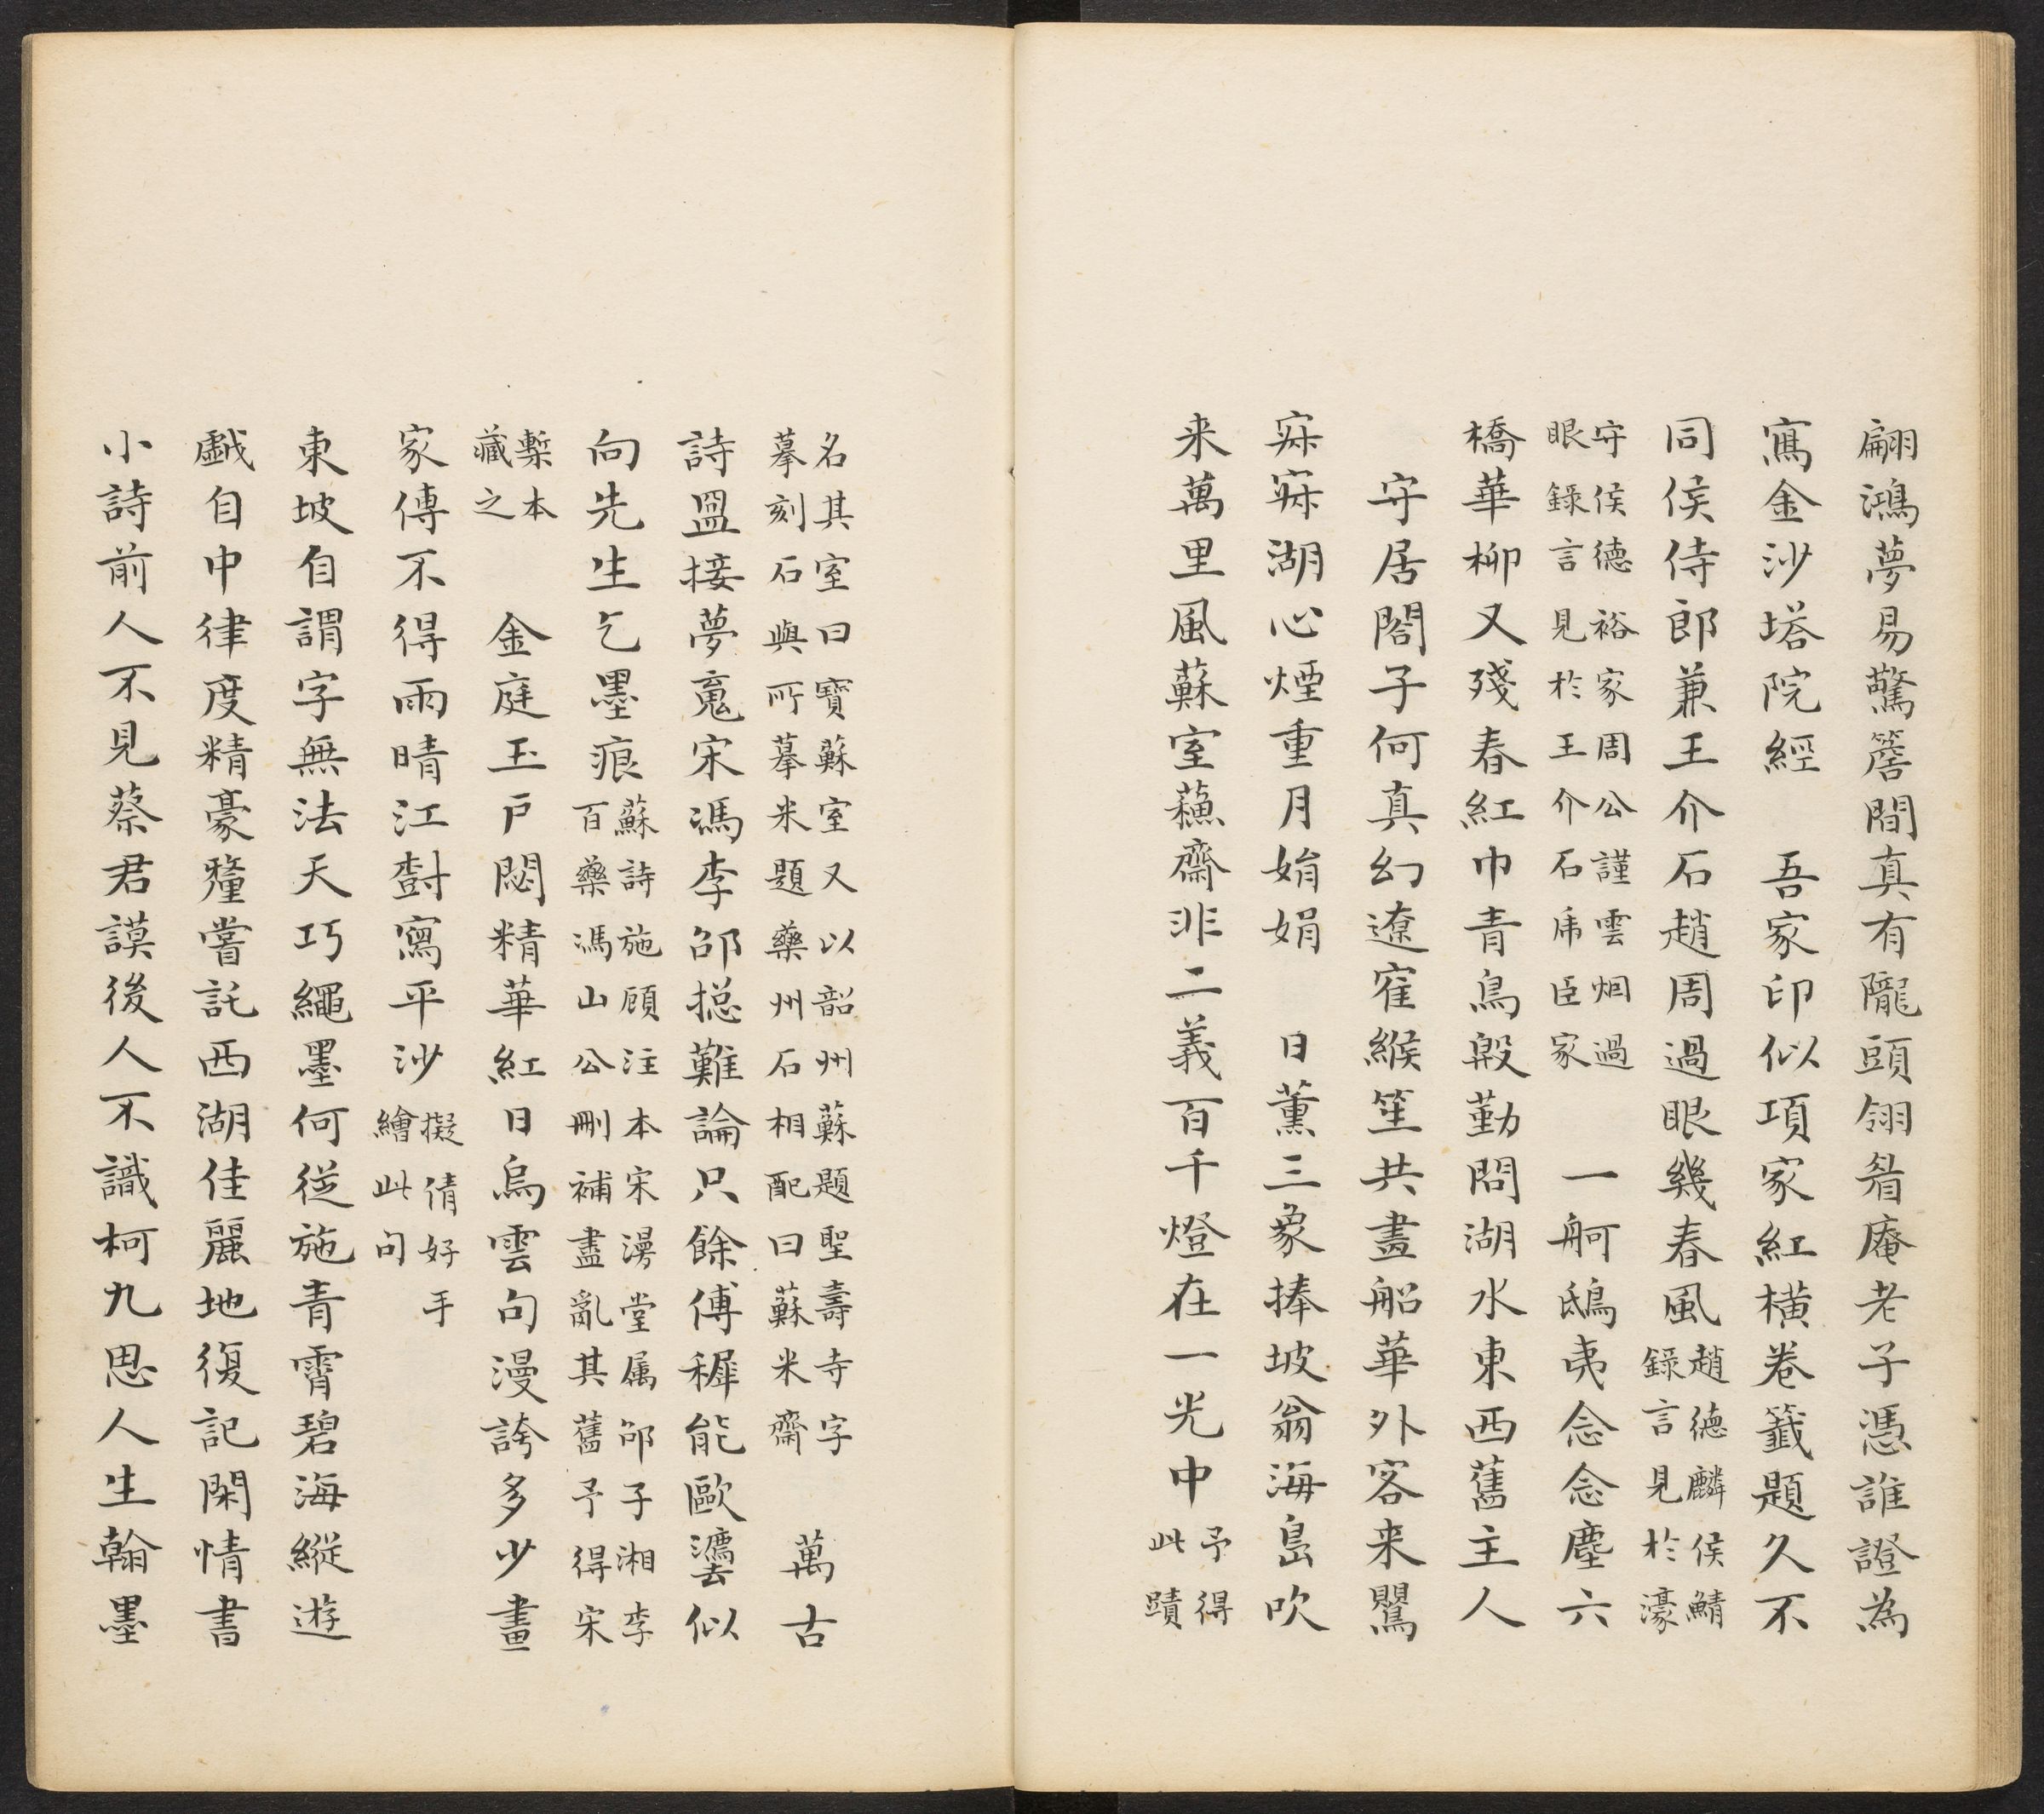 翩鴻夢易驚簷閒真有隴頭翎眉庵老子憑誰證為
寫金沙塔院經　吾家印似項家紅橫卷籤題久不
同侯侍郎兼王介石趙周過眼幾春風趙德麟侯鯖錄言見於濠
守侯德裕家周公謹雲烟過眼錄言見於王介石虎臣家　一舸鴟夷念念塵六
橋華柳又殘春紅巾青鳥殷勤問湖水東西舊主人
守居閣子何真幻遼寉緱笙共畫船華外客来鸎
寐寐湖心煙重月娟娟　日薰三象捧坡翁海島吹
来萬里風蘇室蘓齋非二義百千燈在一光中予得此蹟
名其室曰寶蘇室又以韶州蘇題聖壽寺字摹刻石與所摹米題藥州石相配曰蘇米齋　萬古
詩盟接夢䰟宋馮李邵揔難論只餘傅穉能歐灋似
向先生乞墨痕蘇詩施顧注本宋漫堂属邵子湘李百藥馮山公刪補盡亂其舊予得宋
槧本藏之　金庭玉戶閟精華紅日烏雲句漫誇多少畫
家傳不得雨晴江𣗳寫平沙擬倩好手繪此句
東坡自謂字無法天巧繩墨何從施青霄碧海縱遊
戲自中律度精豪釐嘗託西湖佳麗地復記閑情書
小詩前人不見蔡君謨後人不識柯九思人生翰墨